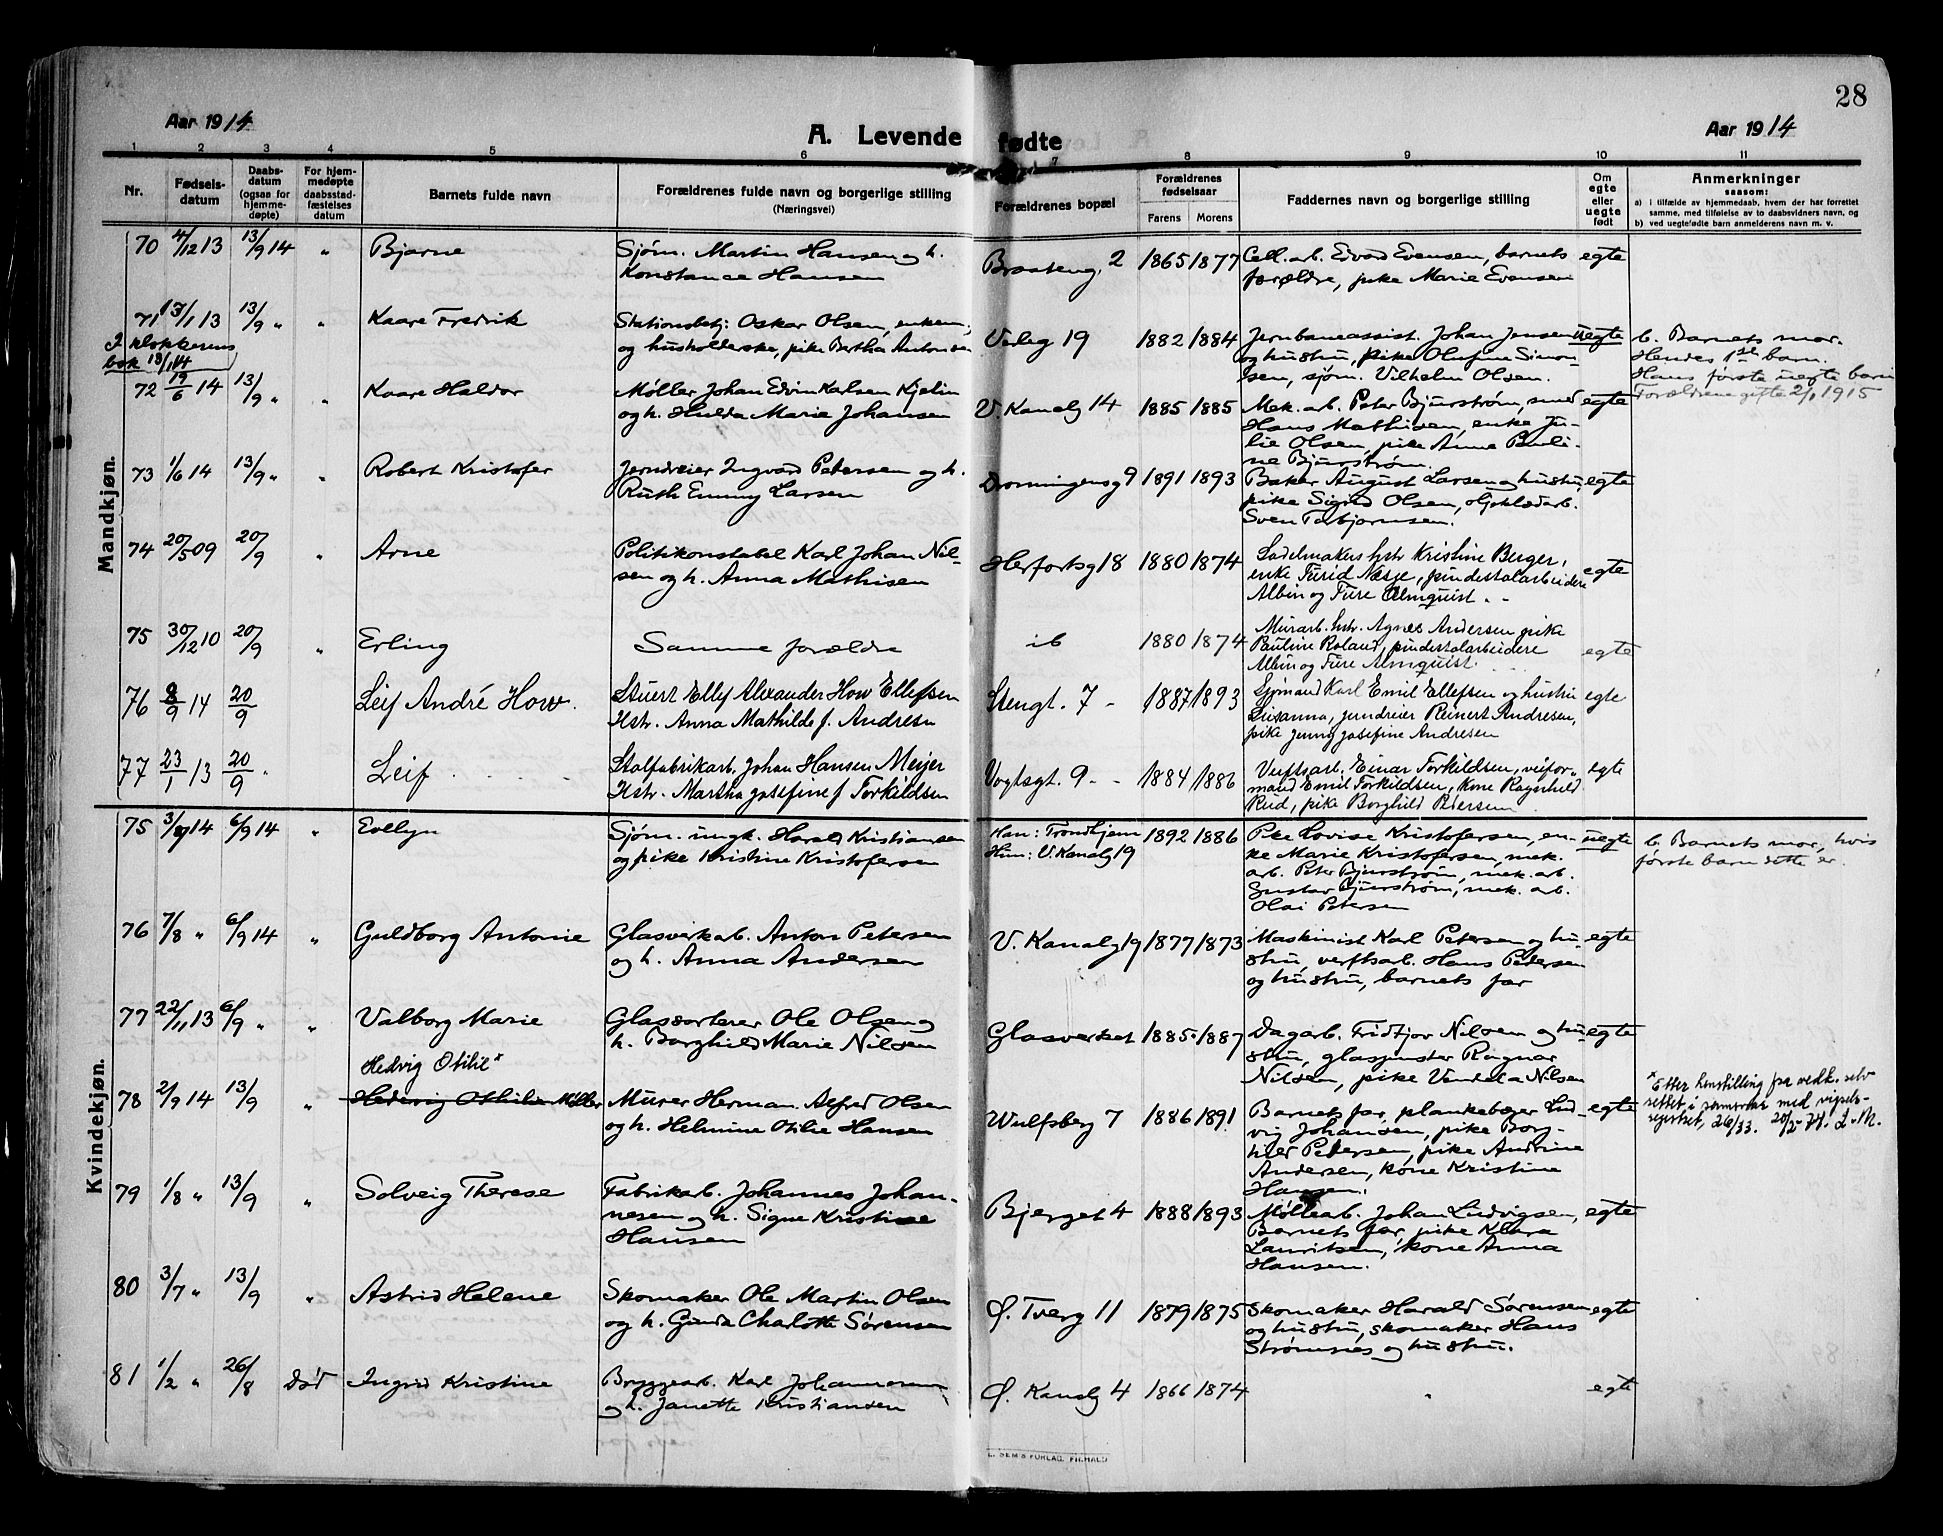 28
Aar 1914
A. Levende fødte
Aar 1914
1 2 3 4 5 6 7 8 9 10 11
Nr.
Fødsels-
datum
Daabs-
datum
(ogsaa for
hjemme-
døpte)
For hjem-
medøpte
daabsstad-
fæstelses
datum
Barnets fulde navn
Forældrenes fulde navn og borgerlige stilling
(Næringsvei)
Forældrenes bopæl
Forældrenes
fødselsaar
Farens Morens
Faddernes navn og borgerlige stilling
Om
egte
eller
uegte
født
Anmerkninger
saasom:
a) i tilfælde av hjemmedaab, hvem der har forrettet
samme, med tilføielse av to daabsvidners navn, og
b) ved uegtefødte barn anmelderens navn m. v.
Mandkjøn.
70 4/12 13 13/9 14 „ Bjarne
Sjøm. Martin Hansen og h.
Konstance Hansen
Braateng. 2 1865 1877
Cell. arb. Edvard Evensen, barnets
forældre, pike Marie Evensen
egte
71 13/1 13 13/9 „ „ Kaare Fredrik
I klokkerens
bok 13/1 14
Stationsbetj: Oskar Olsen, enkem,
og husholderske, pike Bertha Antonsen
Verleg 19 1882 1884
Jernbaneassist. Johan Jensen
og hustru, pike Olufine Simon-
sen, sjøm. Vilhelm Olsen.
uegte
b. Barnets mor.
Hendes 1ste barn.
Hans første uegte barn
Forældrene gifte 2/1 1915
72 19/6 14 13/9 „ „ Kaare Haldor
Møller Johan Edvin Karlsen Kjelin
og h. Hulda Marie Johansen
V. Kanalg 14 1885 1885
Mek. arb. Peter Bjurstrøm, smed
Hans Mathisen, enke Ju-
lie Olsen, pike Anne Pauli-
ne Bjurstrøm.
egte
73 1/6 14 13/9 „ „ Robert Kristofer
Jerndreier Ingvard Petersen og h.
Ruth Emmy Larsen
Dronningensg 9 1891 1893
Baker August Larsen og hustru,
pike Sigrid Olsen, oljeklædarb.
Sven Torbjørnsen.
egte
74 20/5 09 20/9 „ Arne
Politikonstabel Karl Johan Nil-
sen og h. Anna Mathisen
Herfortsg 18 1880 1874
Sadelmakers hstr Kristine Berger,
enke Turid Næsje, pindestolarbeidere
Albin og Ture Almquist.
egte
75 30/12 10 20/9 „ Erling
Samme forældre
ib 1880 1874
Murarb. hstr. Agnes Andersen pike
Pauline Roland, pindestolarbeidere
Albin og Ture Almquist.
egte
76 8/9 14 20/9 Leif André How.
Stuert Ellef Alexander How Ellefsen
Hstr. Anna Mathilde f. Andresn
Stengt. 7 - 1887 1893
Sjømand Karl Emil Ellefsen og hustru
Susanna, jerndreier Reinert Andresen,
pike Jenny Josefine Andresen
egte
77 23/1 13 20/9 „ Leif
Stolfabrikarb. Johan Hansen Meijer
Hstr. Martha Josefine f Torkildsen
Vogtsgt. 9 - - 1884 1886
Verftsarb. Einar Torkildsen, veifor-
mand Emil Torkildsen, kone Ragnhild
Rud, pike Borghild Petersen
egte
Kvindekjøn.
75 3/8 14 6/9 14 „ Evelyn
Sjøm. ungk. Harald Kristiansen
og pike Kristine Kristofersen
Han: Trondhjem
Hun: V. Kanalg 19
1892 1886
Pike Lovise Kristofersen, en-
ke Marie Kristofersen, mek.
arb. Peter Bjurstrøm, mek. arb.
Gustav Bjurstrøm, mek. arb.
Olai Petersen
uegte
b. Barnets mor, hvis
første barn dette er.
76 7/8 „ 6/9 14 „ Guldborg Antonie
Glasverkarb. Anton Petersen
og h. Anna Andersen
V. Kanalg 19 1877 1873
Maskinist Karl Petersen og hu-
stru, verftsarb. Hans Pedersen
og hustru, barnets far
egte
77 22/11 13 6/9 „ „ Valborg Marie
Glassorterer Ole Olsen og
h. Borghild Marie Nilsen
Glasverket 1885 1887
Dagarb. Fridtjov Nilsen og hu-
stru, glaspuster Ragnar
Nilsen, pike Vendela Nilsen
egte
Hedvig Otilie*
78 2/9 14 13/9 „ Hedevig Othilie Møller
Murer Herman Alfred Olsen
og h. Helmine Otilie Hansen
Wulfsberg 7 1886 1891
Barnets far, plankebærer Lud-
vig Johansen, pike Borg-
hild Petersen, pike Andrine
Andersen, kone Kristine
Hansen.
egte
* Etter henstilling fra vedk. selv
rettet i samsvar med vigsels-
registret, 26/33. 20/2-74. L.M.
79 1/8 „ 13/9 „ Solveig Therese
Fabrikarb. Johannes Johan-
nesen og h. Signe Kristine
Hansen
Bjerget 4 1888 1893
Møllearb. Johan Ludvigsen,
Barnets far, pike Klara
Lauritsen, kone Anna
Hansen.
egte
80 3/7 „ 13/9 „ Astrid Helene
Skomaker Ole Martin Olsen
og h. Gunda Charlotte Sørensen
Ø. Tverg 11 1879 1875
Skomaker Harald Sørensen
og hustru, skomaker Hans
Strømsnes og hustru.
egte
81 1/2 „ 26/8 Død Ingrid Kristine
Bryggearb. Karl Johannesen
og h. Janette Kristiansen
Ø. Kanalg 4 1866 1874
„ egte
E. SEM'S FORLAG, FR.HALD